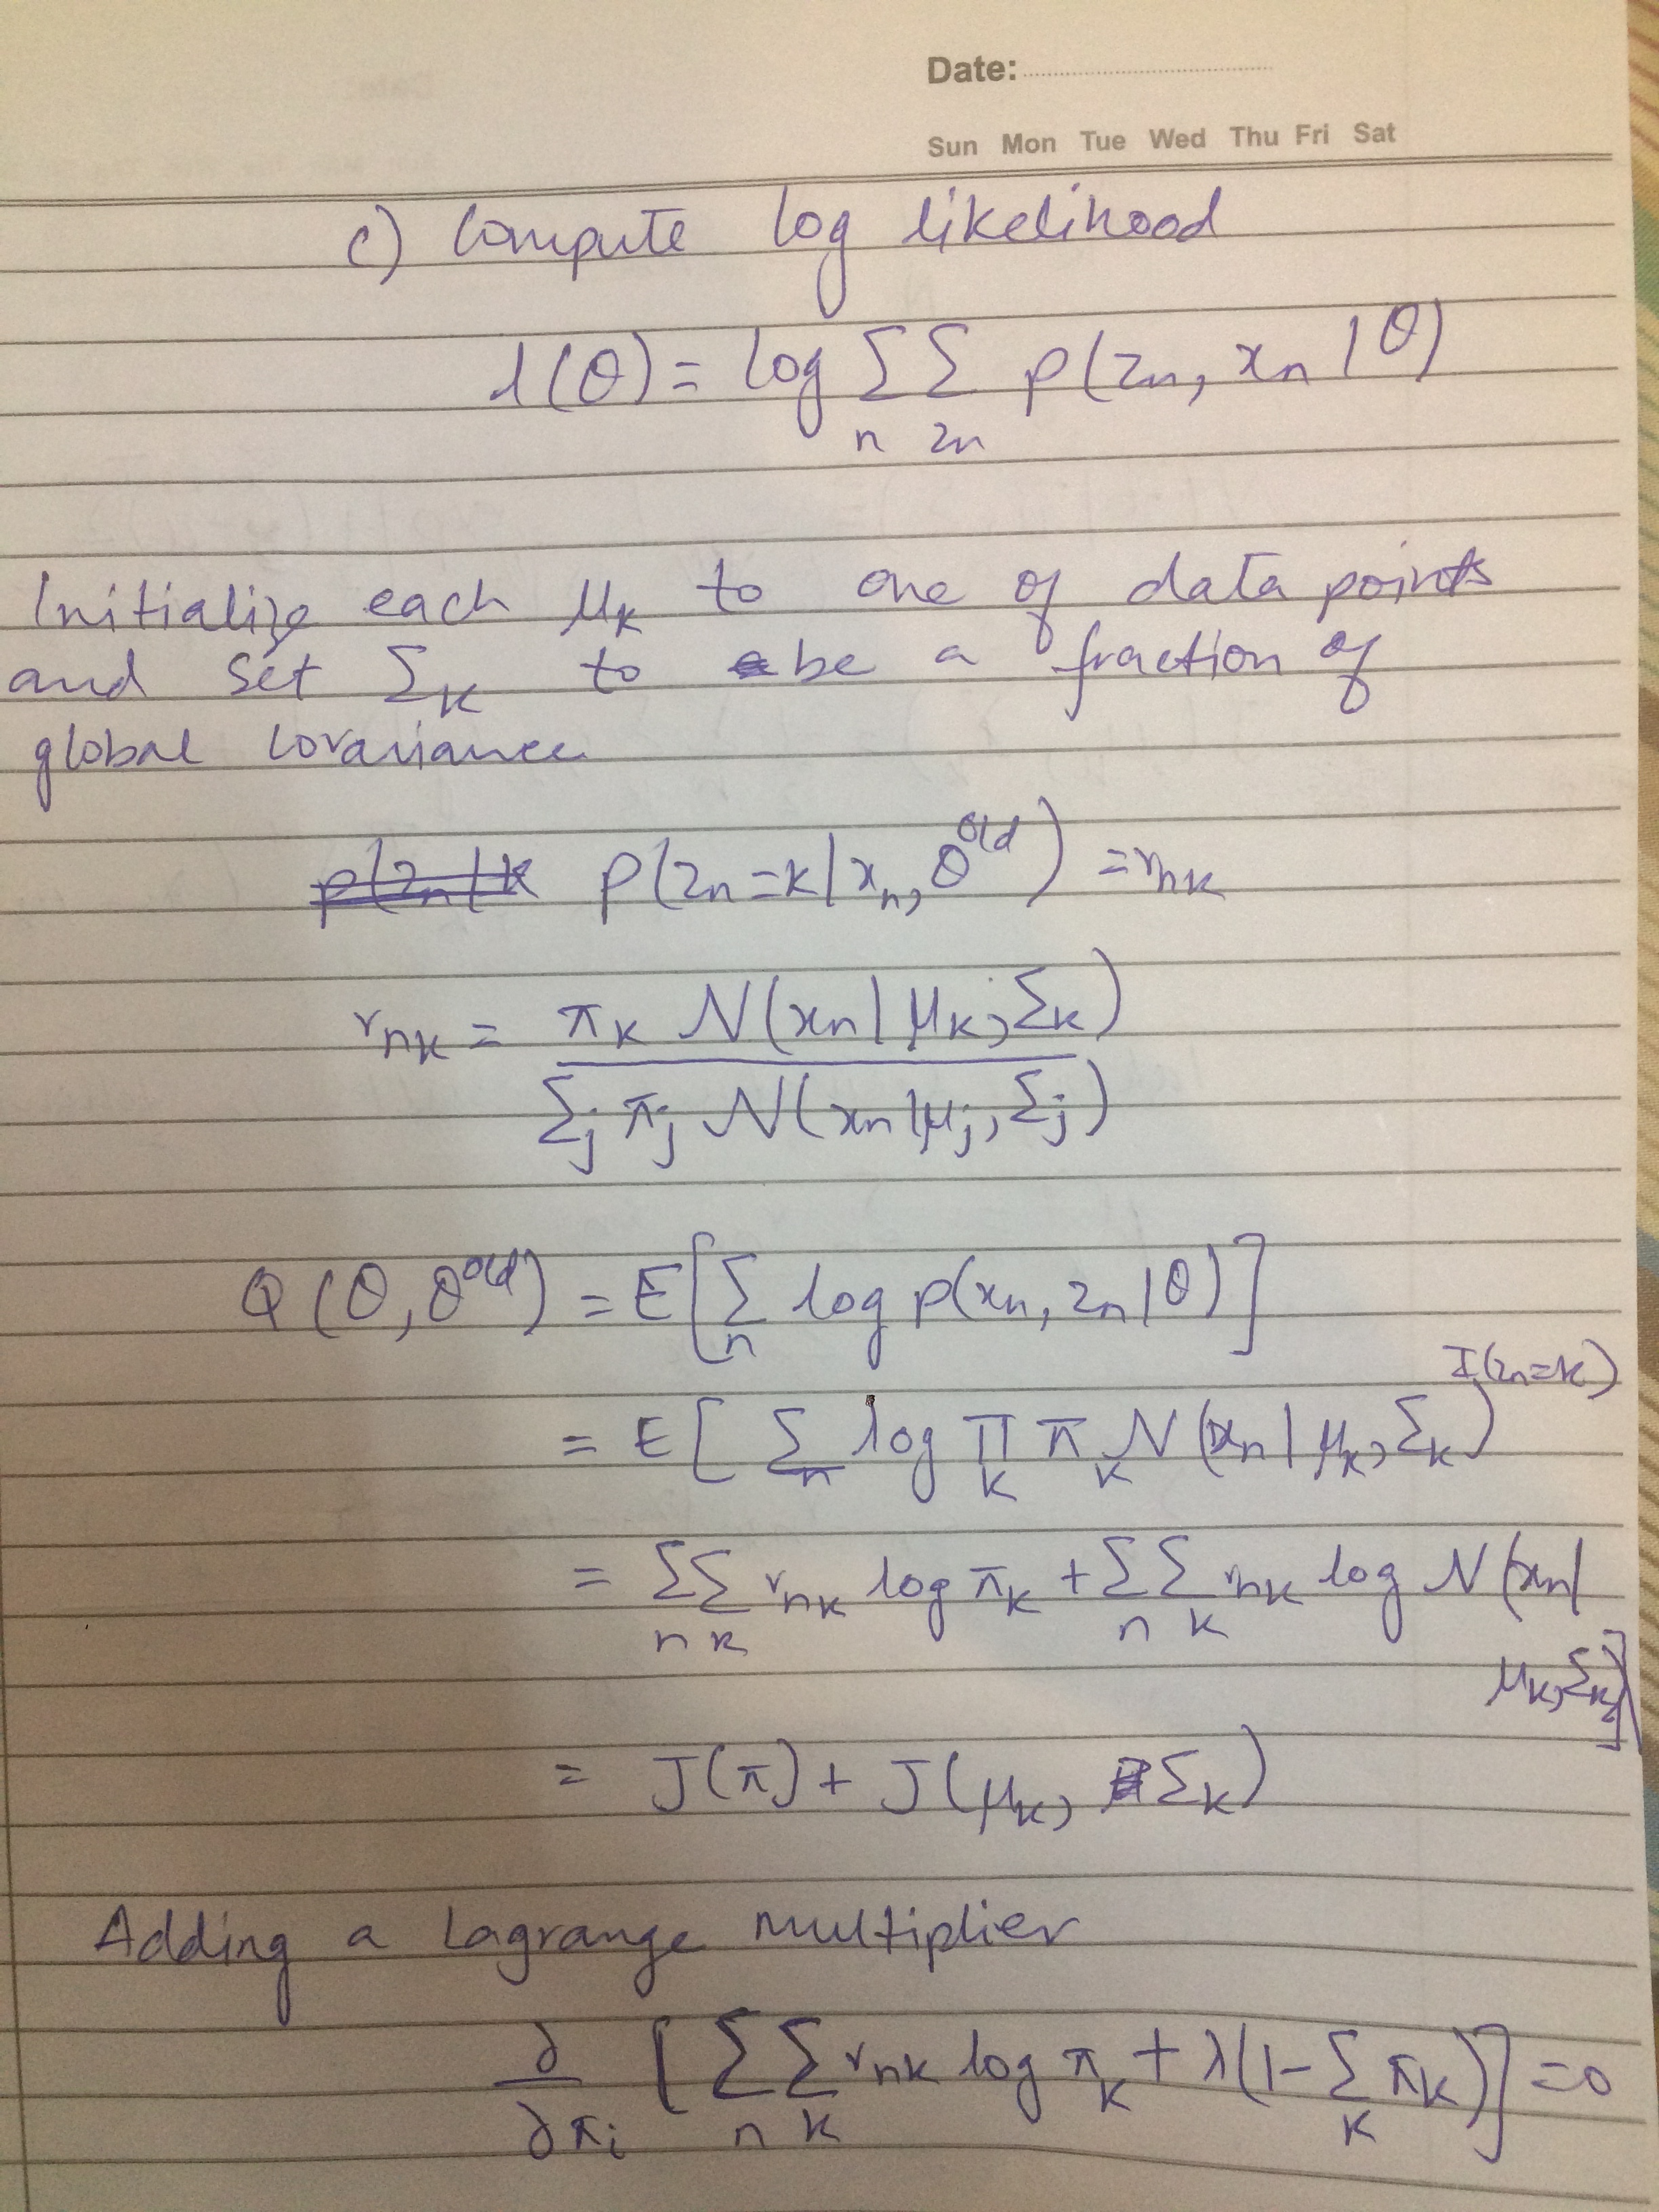 Date:
Sun Mon Tue Wed Thu Fri Sat
c) Compute log likelihood
l(θ) = log Σ_n Σ_zn p(zn, xn | θ)
Initialize each μ_k to one of data points
and set Σ_k to be a fraction of
global covariance
p(zn=k | xn, θ^old) = r_nk
r_nk = π_k N(xn | μ_k, Σ_k)
Σ_j π_j N(xn | μ_j, Σ_j)
Q(θ, θ^old) = E[Σ_n log p(xn, zn | θ)]
= E[Σ_n log Π_k π_k N(xn | μ_k, Σ_k)^I(zn=k)
= Σ_n Σ_k r_nk log π_k + Σ_n Σ_k r_nk log N(xn |
μ_k, Σ_k)]
= J(π) + J(μ_k, Σ_k)
Adding a Lagrange multiplier
∂/∂π_i [Σ_n Σ_k r_nk log π_k + λ(1 - Σ_k π_k)] = 0